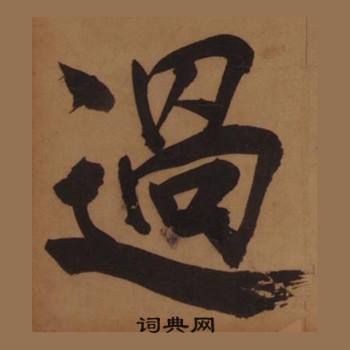 過
词典网